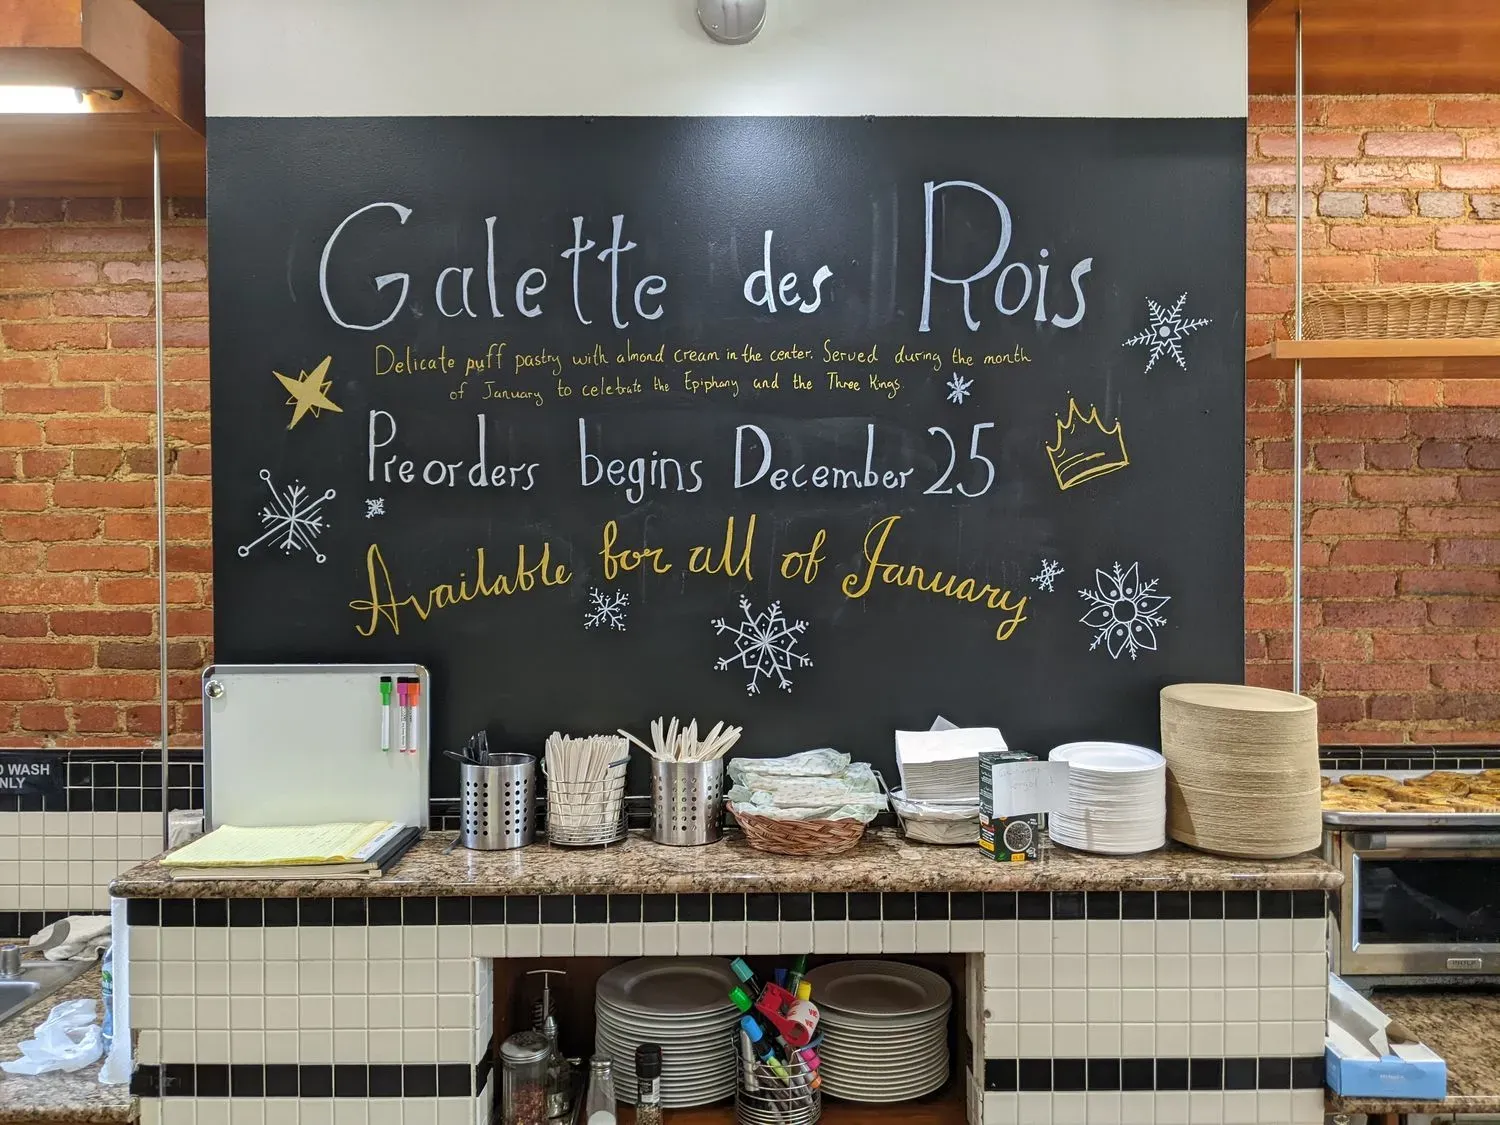 Galette des Rois
Delicate puff pastry with almond cream in the center. Served during the month
of January to celebrate the Epiphany and the Three Kings.
Preorders begins December 25
Available for all of January
WASH
NLY